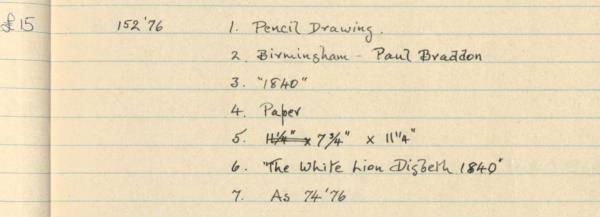 £15 152'76 1. Pencil Drawing.
2. Birmingham - Paul Braddon
3. "1840"
4. Paper
5. 11¼" x 7¾" x 11¼"
6. "The White Lion Digbeth 1840"
7. As 74'76